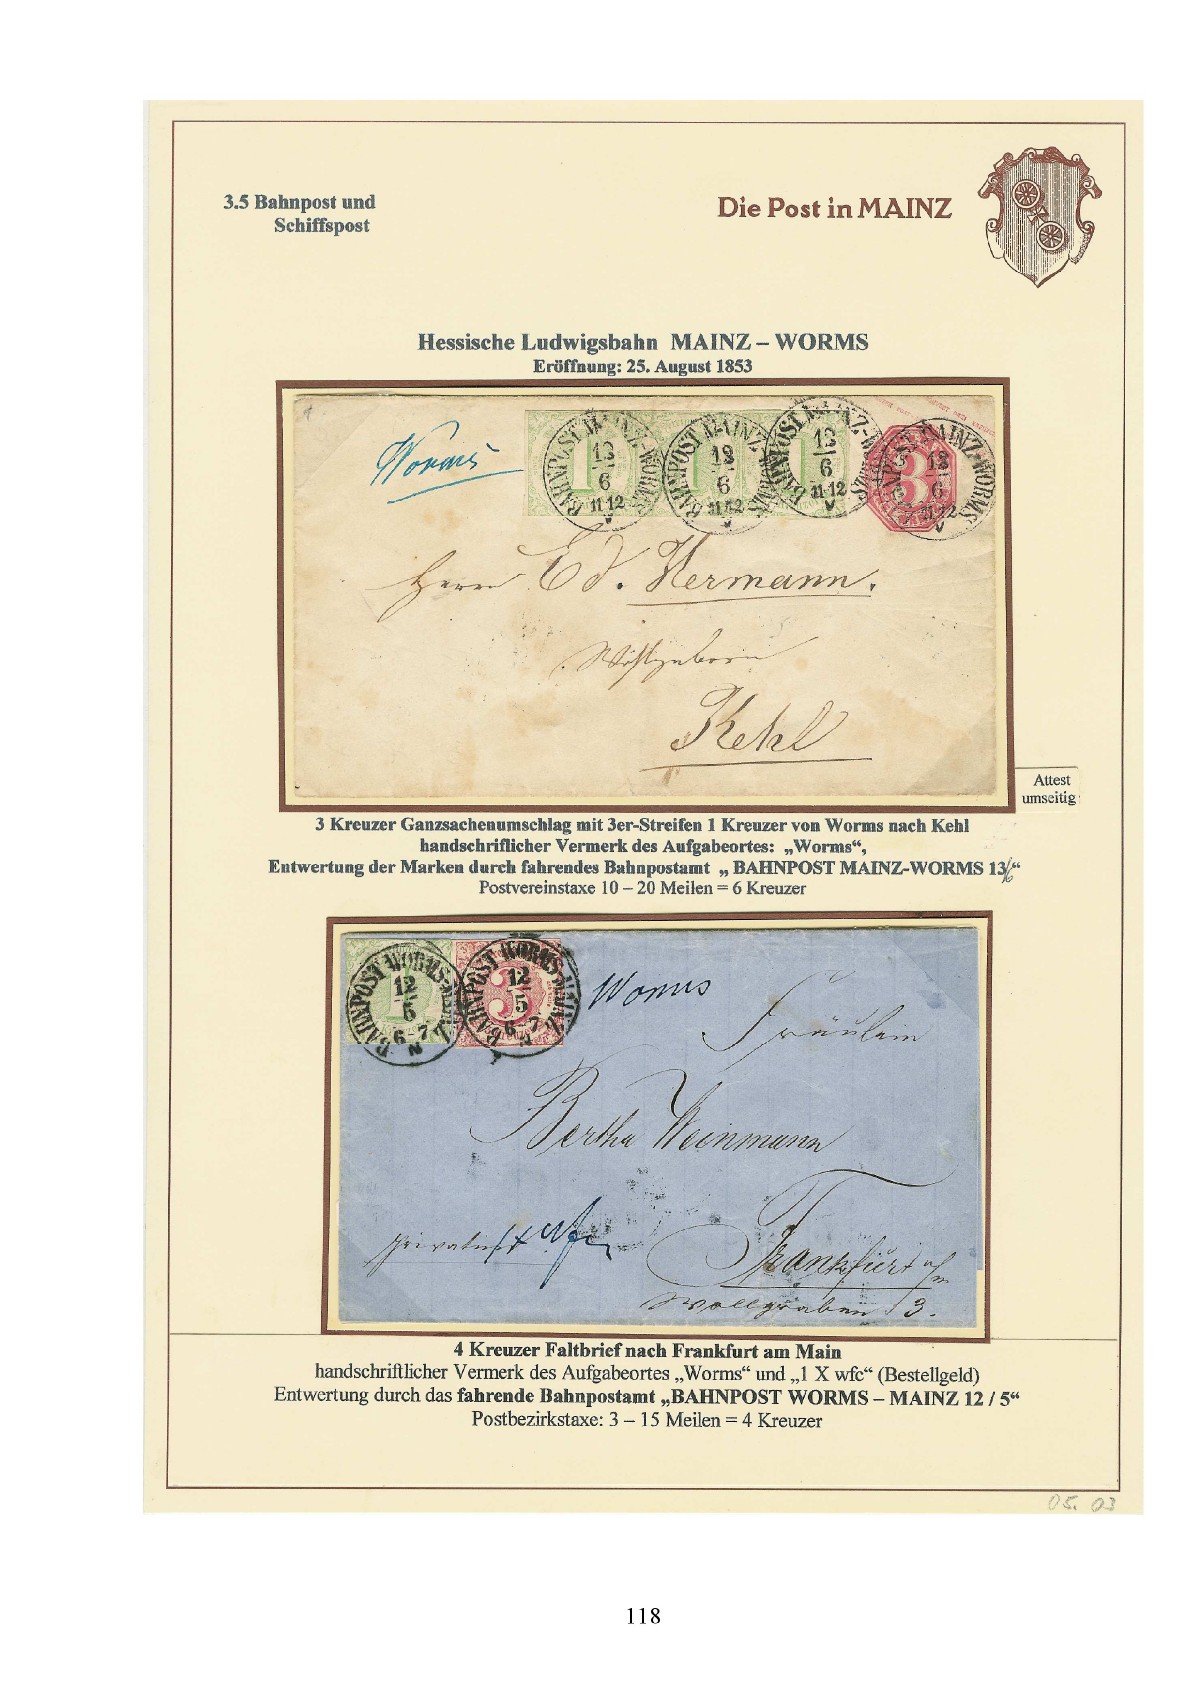 3.5 Bahnpost und
Schiffspost
Die Post in MAINZ
Hessische Ludwigsbahn MAINZ – WORMS
Eröffnung: 25. August 1853
Worms
BAHNPOST MAINZ-WORMS
13
6
11-12
V
BAHNPOST MAINZ-WORMS
13
6
11-12
V
BAHNPOST MAINZ-WORMS
13
6
11-12
V
BAHNPOST MAINZ-WORMS
13
6
11-12
V
Herrn Ed. Hermann.
Wohlgeboren
Kehl
Attest
umseitig
3 Kreuzer Ganzsachenumschlag mit 3er-Streifen 1 Kreuzer von Worms nach Kehl
handschriftlicher Vermerk des Aufgabeortes: „Worms“,
Entwertung der Marken durch fahrendes Bahnpostamt „ BAHNPOST MAINZ-WORMS 13/6“
Postvereinstaxe 10 – 20 Meilen = 6 Kreuzer
BAHNPOST WORMS-MAINZ
12
5
6-7
N
BAHNPOST WORMS-MAINZ
12
5
6-7
N
Worms
Fräulein
Bertha Weinmann
Frankfurt a/m
Wollgraben 13.
4 Kreuzer Faltbrief nach Frankfurt am Main
handschriftlicher Vermerk des Aufgabeortes „Worms“ und „1 X wfc“ (Bestellgeld)
Entwertung durch das fahrende Bahnpostamt „BAHNPOST WORMS – MAINZ 12 / 5“
Postbezirkstaxe: 3 – 15 Meilen = 4 Kreuzer
05. 03
118